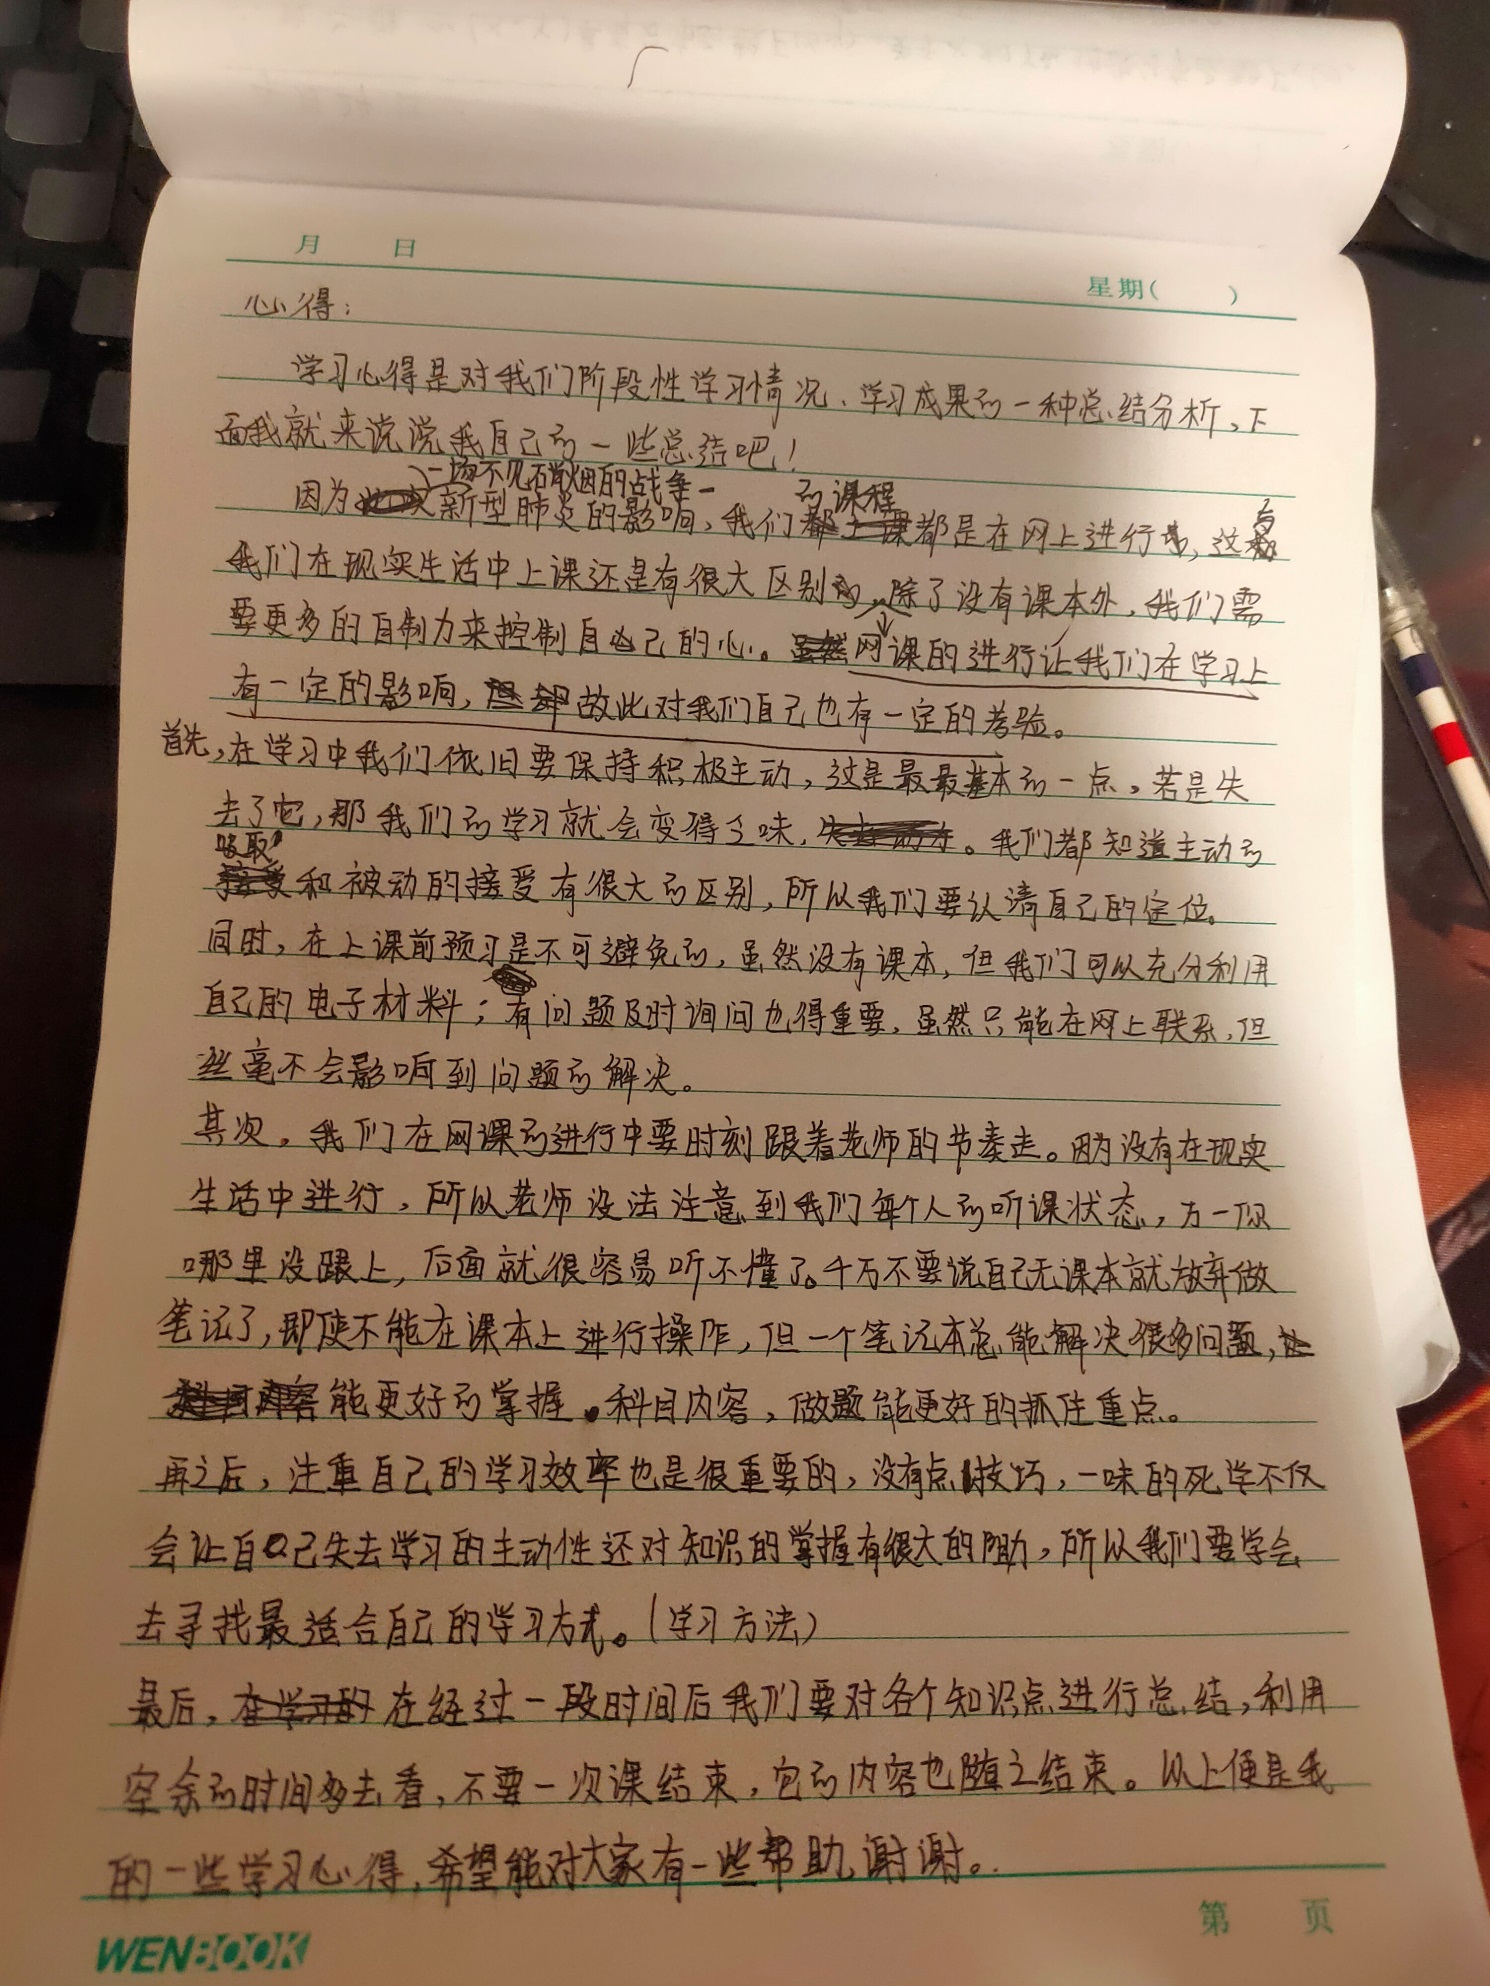 月 日
星期( )
心得:
学习心得是对我们阶段性学习情况、学习成果的一种总结分析,下
面我就来说说我自己的一些总结吧!
一场不见硝烟的战争—
的课程
因为新型肺炎的影响,我们都是在网上进行,这与
我们在现实生活中上课还是有很大区别的,除了没有课本外,我们需
要更多的自制力来控制自己的心。网课的进行让我们在学习上
有一定的影响,故此对我们自己也有一定的考验。
首先,在学习中我们依旧要保持积极主动,这是最最基本的一点。若是失
去了它,那我们的学习就会变得乏味。我们都知道主动的
吸取
和被动的接受有很大的区别,所以我们要认清自己的定位。
同时,在上课前预习是不可避免的,虽然没有课本,但我们可以充分利用
自己的电子材料;有问题及时询问也得重要,虽然只能在网上联系,但
丝毫不会影响到问题的解决。
其次,我们在网课的进行中要时刻跟着老师的节奏走。因为没有在现实
生活中进行,所以老师没法注意到我们每个人的听课状态,万一你
哪里没跟上,后面就很容易听不懂了。千万不要说自己无课本就放弃做
笔记了,即使不能在课本上进行操作,但一个笔记本总能解决很多问题,
能更好的掌握科目内容,做题能更好的抓住重点。
再之后,注重自己的学习效率也是很重要的,没有点技巧,一味的死学不仅
会让自己失去学习的主动性还对知识的掌握有很大的阻力,所以我们要学会
去寻找最适合自己的学习方式。(学习方法)
最后,在经过一段时间后我们要对各个知识点进行总结,利用
空余的时间多去看,不要一次课结束,它的内容也随之结束。以上便是我
的一些学习心得,希望能对大家有一些帮助,谢谢。
第 页
WENBOOK